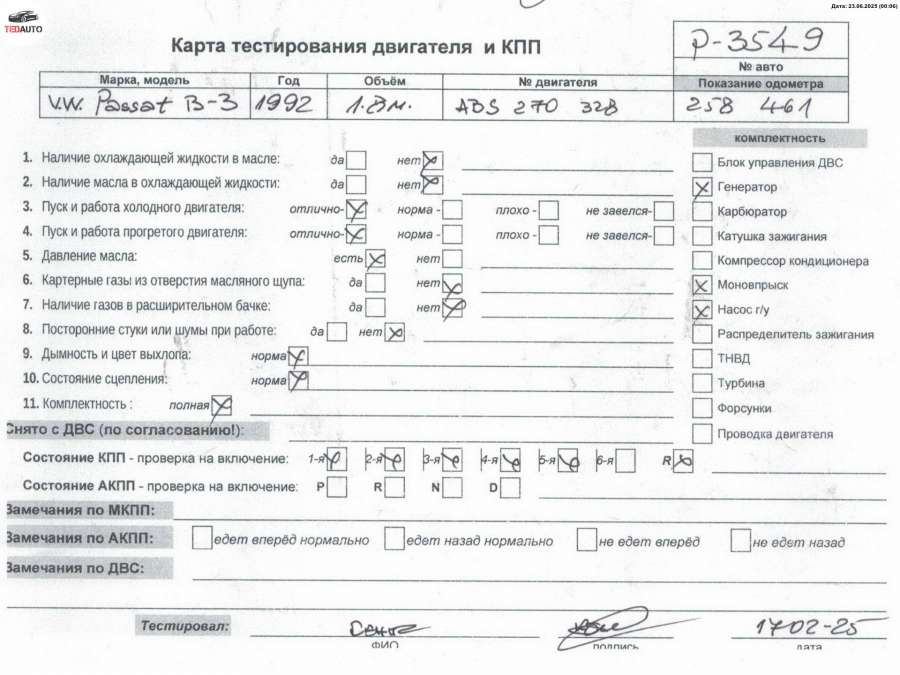 Дата: 23.06.2025 (00:06)
TEDAUTO
Карта тестирования двигателя и КПП
P-3549
№ авто
Марка, модель Год Объём № двигателя Показание одометра
V.W. Passat B-3 1992 1.8м. ABS 270 328 258 461
комплектность
1. Наличие охлаждающей жидкости в масле: да нет
Блок управления ДВС
2. Наличие масла в охлаждающей жидкости: да нет
Генератор
3. Пуск и работа холодного двигателя: отлично- норма - плохо - не завелся-
Карбюратор
4. Пуск и работа прогретого двигателя: отлично- норма - плохо - не завелся-
Катушка зажигания
5. Давление масла: есть нет
Компрессор кондиционера
6. Картерные газы из отверстия масляного щупа: да нет
Моновпрыск
7. Наличие газов в расширительном бачке: да нет
Насос г/у
8. Посторонние стуки или шумы при работе: да нет
Распределитель зажигания
9. Дымность и цвет выхлопа: норма
ТНВД
10. Состояние сцепления: норма
Турбина
11. Комплектность : полная
Форсунки
Снято с ДВС (по согласованию!):
Проводка двигателя
Состояние КПП - проверка на включение: 1-я 2-я 3-я 4-я 5-я 6-я R
Состояние АКПП - проверка на включение: P R N D
Замечания по МКПП:
Замечания по АКПП: едет вперёд нормально едет назад нормально не едет вперёд не едет назад
Замечания по ДВС:
Тестировал: 17 02-25
ФИО подпись дата